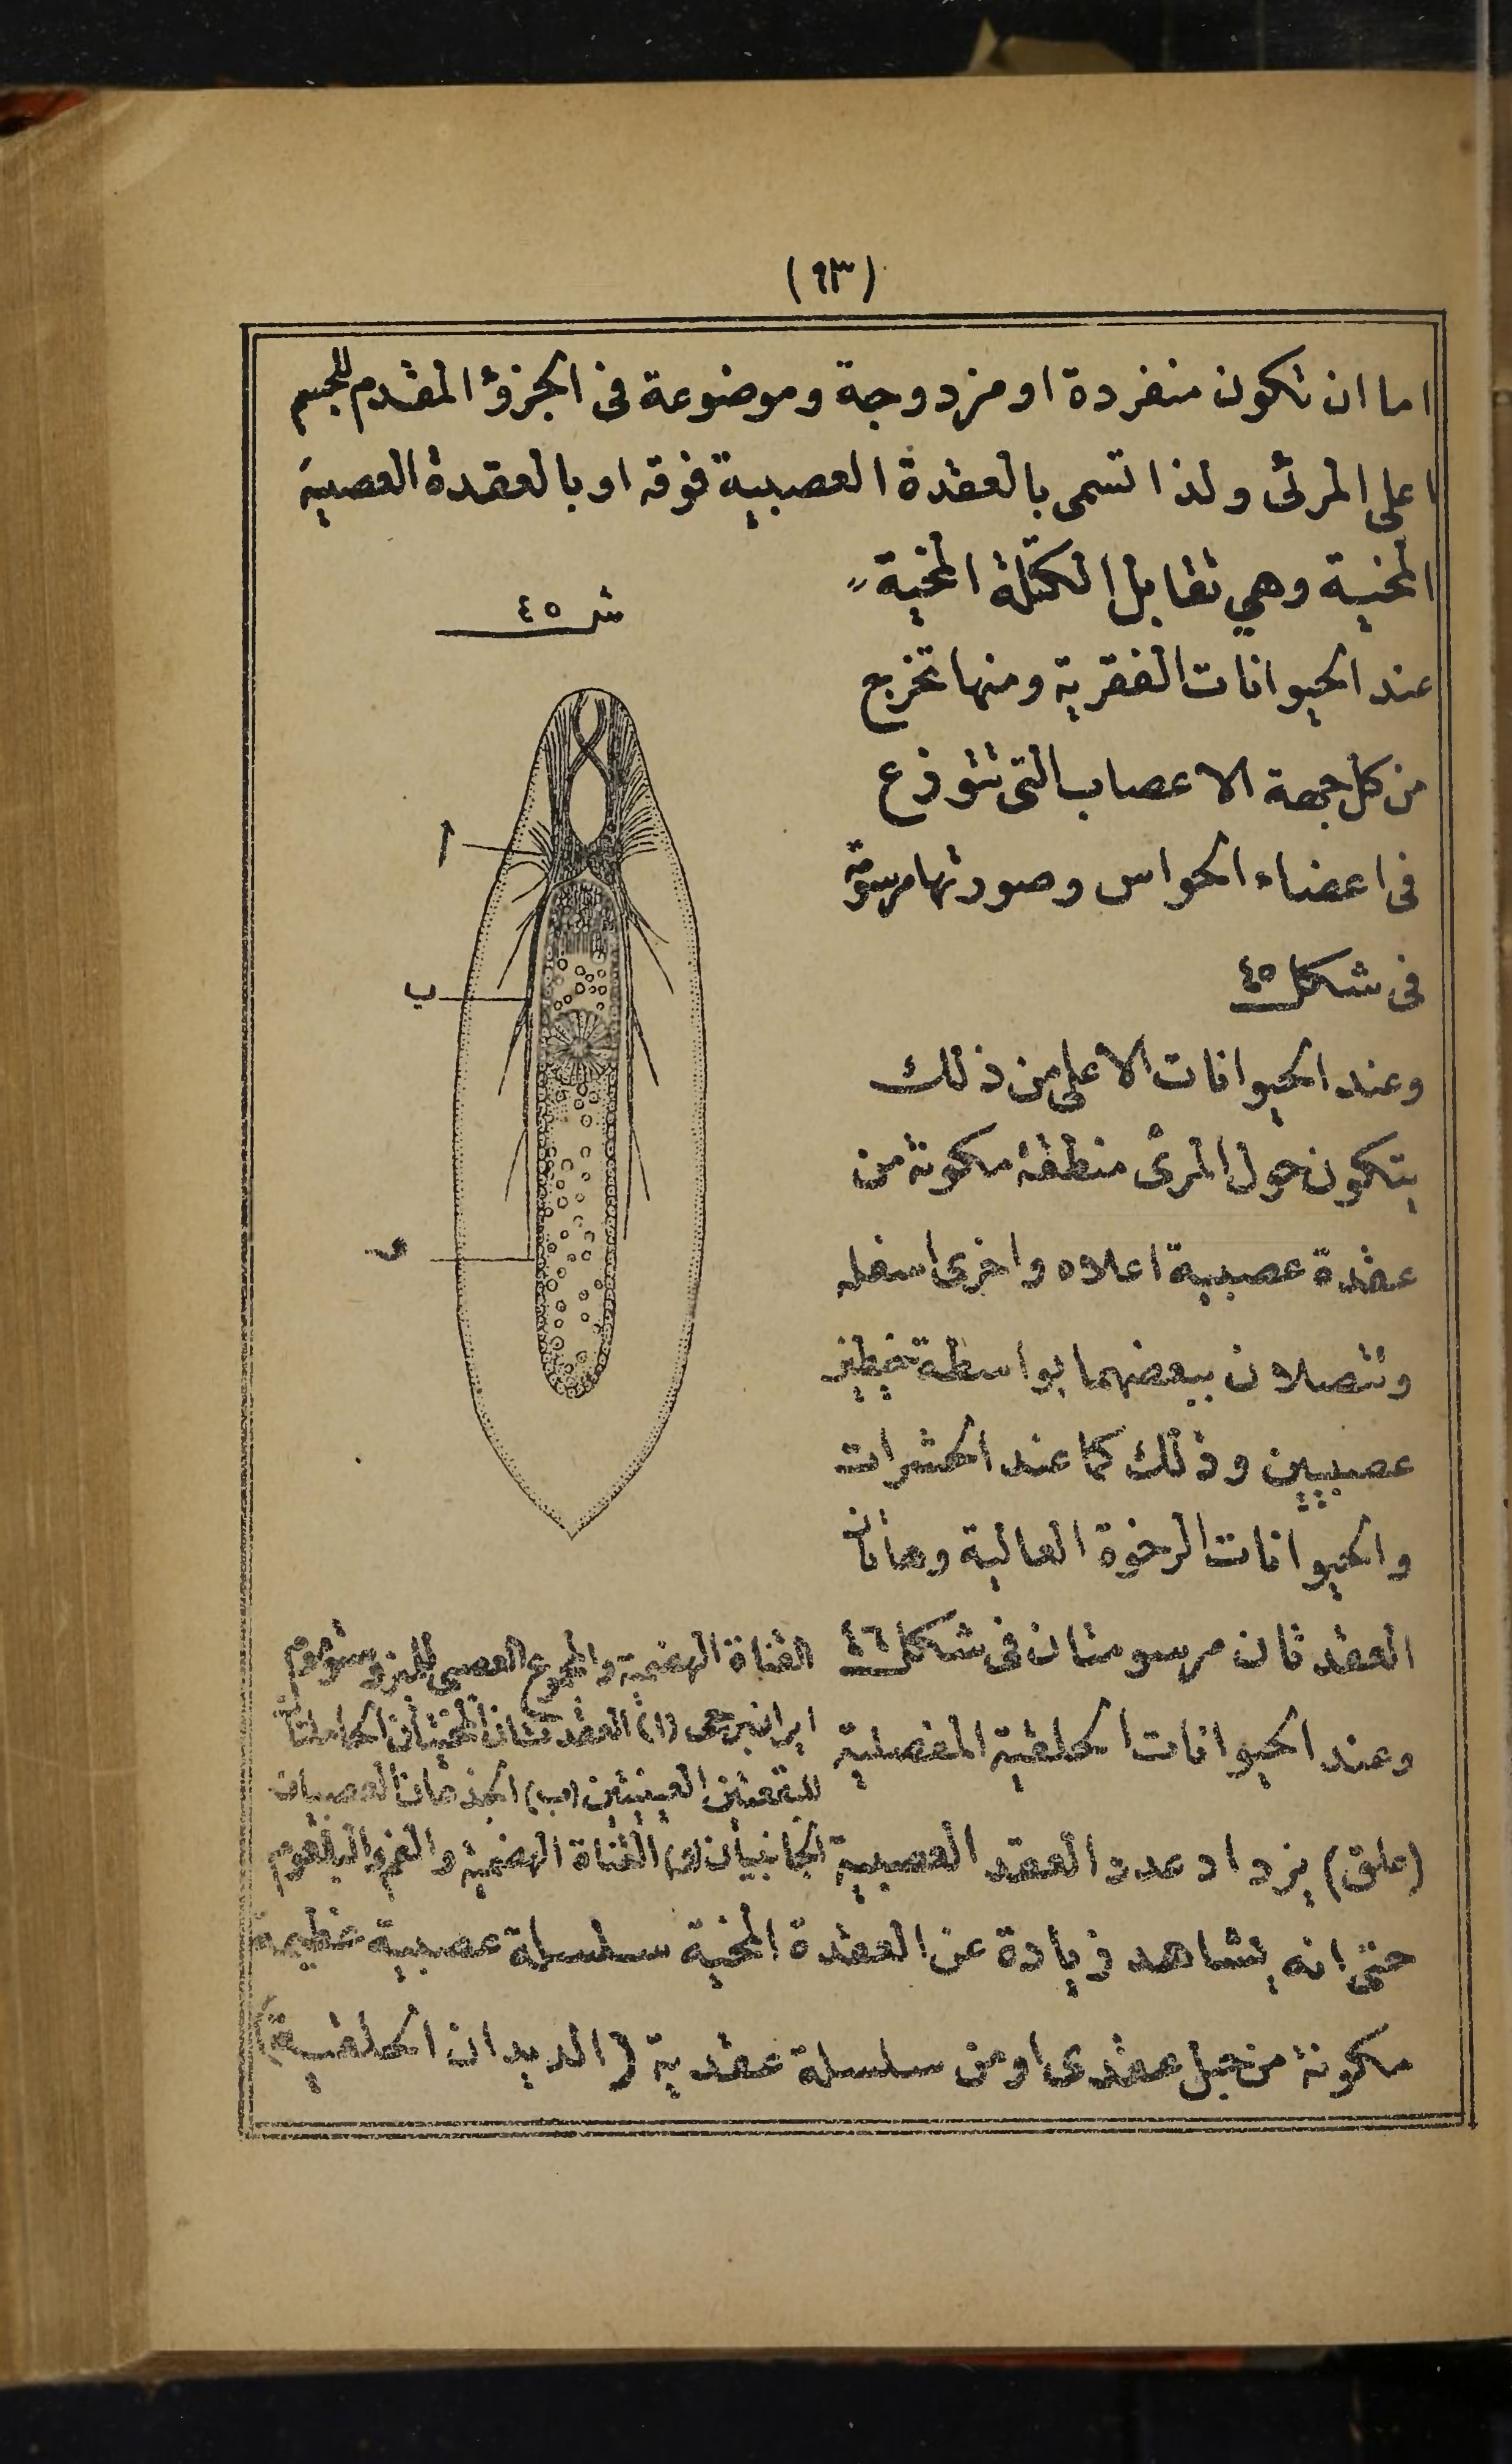 (٩٣)
اما ان تكون منفردة او مزدوجة وموضوعة فى الجزؤ المقدم للجسم
اعلى المرئ ولذا تسمى بالعقدة العصبية فوقه او بالعقدة العصبية
المخية وهي تقابل الكتلة المخية
عند الحيوانات الفقرية ومنها تخرج
من كل جهة الاعصاب التى تتوزع
فى اعضاء الحواس وصورتها مرسومة
فى شكل ٤٥
وعند الحيوانات الاعلى من ذلك
يتكون حول المرئ منطقة مكونة من
عقدة عصبية اعلاه واخرى اسفله
وتتصلان ببعضهما بواسطة خيطين
عصبيين وذلك كما عند الحشرات
والحيوانات الرخوة العالية وهاتان
العقدتان مرسومتان فى شكل ٤٦
وعند الحيوانات الحلقية المفصلية
(علق) يزداد عدد العقد العصبية
حتى انه يشاهد زيادة عن العقدة المخية سلسلة عصبية عظيمة
مكونة من حبل عقدى او من سلسلة عقدية (الديدان الحلقية)
شكل ٤٥
أ
ب
القناة الهضمية والمجموع العصبى
(ا) العقدتان المخيتان الحاملتان
للبقعتين العينيتين (ب) الجذعان العصبيان
الجانبيان القناة الهضمية والفم والبلعوم